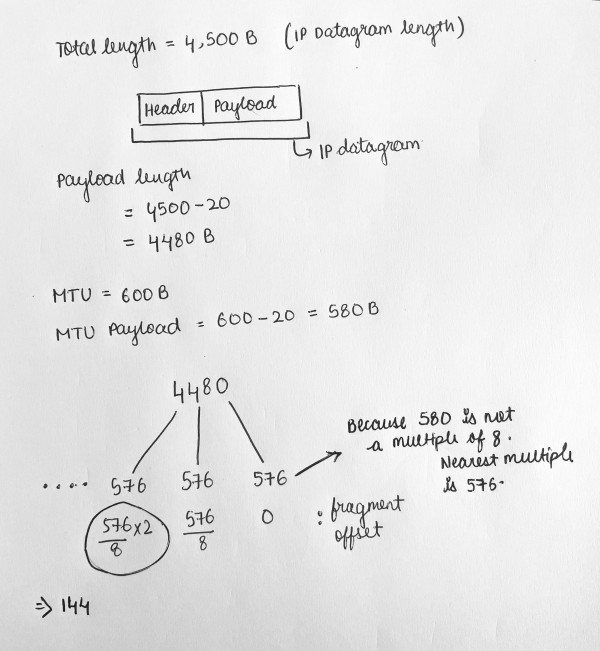 Total length = 4,500 B (IP Datagram length)
Header | Payload
↳ IP datagram
Payload length
= 4500 - 20
= 4480 B
MTU = 600 B
MTU Payload = 600 - 20 = 580 B
4480
Because 580 is not
a multiple of 8.
Nearest multiple
is 576.
.... 576 576 576
576/8 x2 576/8 0 : fragment
offset
⇒ 144